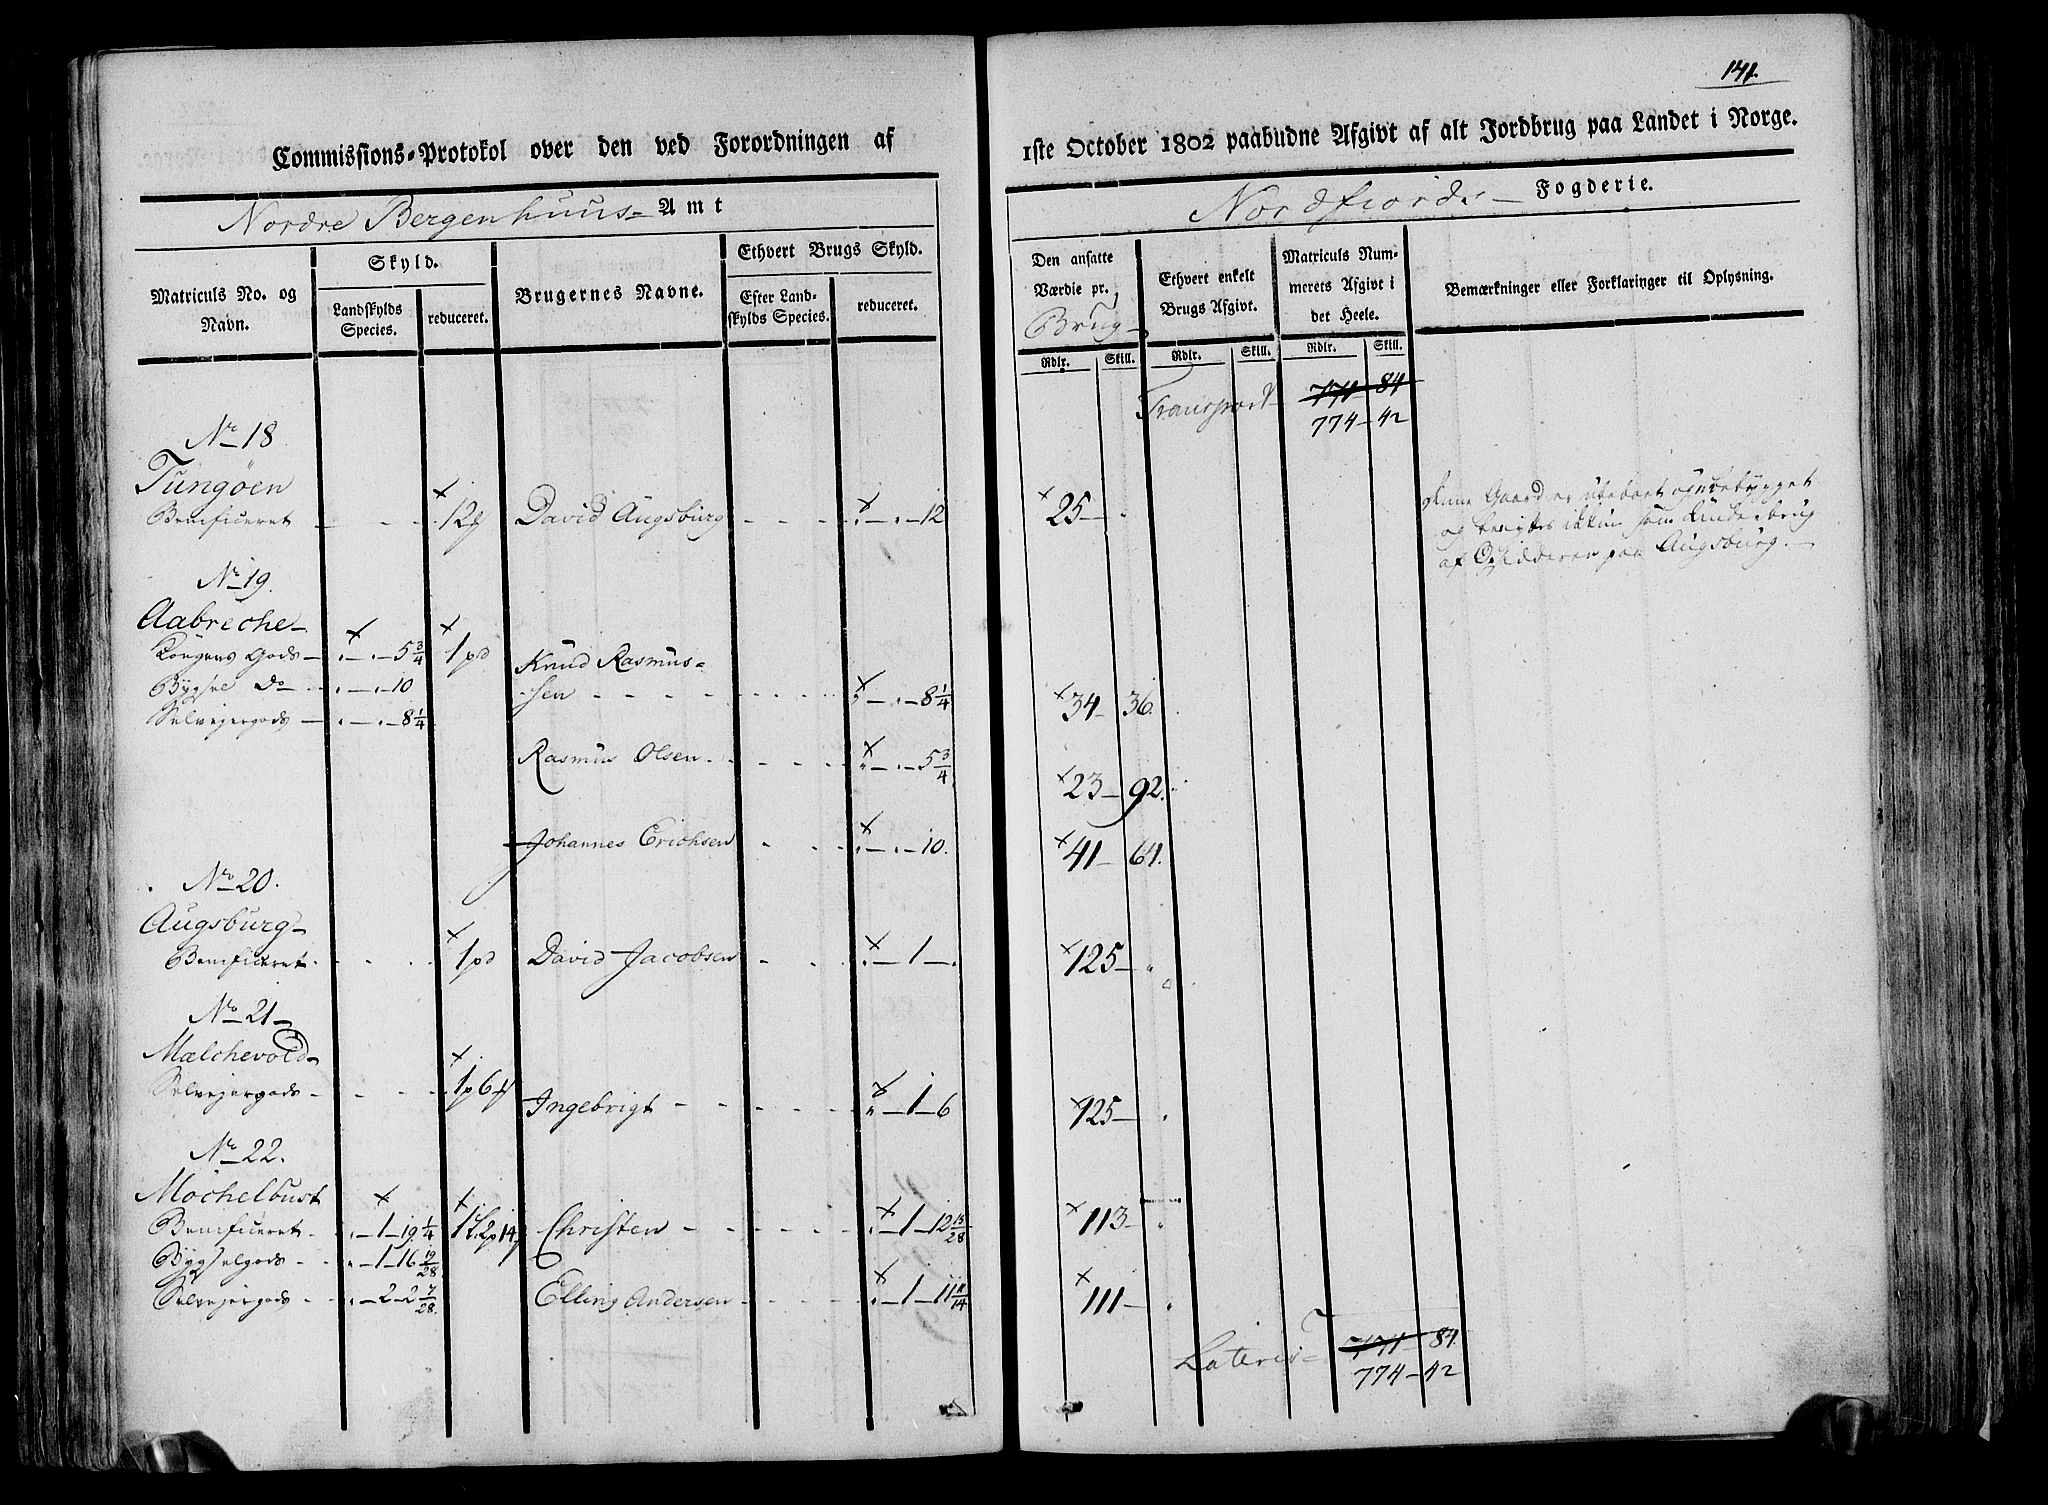 141.
Commissions-Protokol over den ved Forordningen af
1ste October 1802 paabudne Afgivt af alt Jordbrug paa Landet i Norge.
Nordre Bergenhuus- Amt
Nordfiords- Fogderie.
Matriculs No. og Navn.
Skyld.
Landskylds Species.
reduceret.
Brugernes Navne.
Ethvert Brugs Skyld.
Efter Landskylds Species.
reduceret.
Den ansatte Værdie pr. Brug
Rdlr. Skill.
Ethvert enkelt Brugs Afgivt.
Rdlr. Skill.
Matriculs Nummerets Afgivt i det Heele.
Rdlr. Skill.
Bemærkninger eller Forklaringer til Oplysning.
Transport 771 - 84
774 - 42
No 18
Tungöen
Beneficeret - - - 12 David Augsburg - - - " - " - 12 25 - "
Denne Gaard er ubeboet og ubebygget
og benyttes ikkun som Underbrug
af Opsidderen paa Augsburg. -
No 19.
Aabreche -
Kongens Gods - " - " - 5 3/4 1 pd Knud Rasmus-
Bygsel Do - " - " - 10 sen - - - - " - " - 8 1/4 34 - 36.
Selvejergods - " - " - 8 1/4
Rasmus Olsen - - - " - " - 5 3/4 23 - 92.
Johannes Erichsen - - " - " - 10. 41 - 64.
No 20.
Augsburg -
Beneficeret - - - 1 pd David Jacobsen - - " - 1 - " 125 - "
No 21 -
Mælchevold -
Selvejergods - - - 1 p 6 Ingebrigt - - - " - 1 - 6 125 - "
No 22.
Mochelbust
Beneficeret - " - 1 - 19 1/4 1 2 p 14 Christen - - - " - 1 - 12 13/28 113 - "
Bygselgods - " - 1 - 16 19/28
Selvejergods - " - 2 - 2 7/28. Elling Andersen - - - " - 1 - 11 11/14 111 - "
Lateris - 771 - 84.
774 - 42